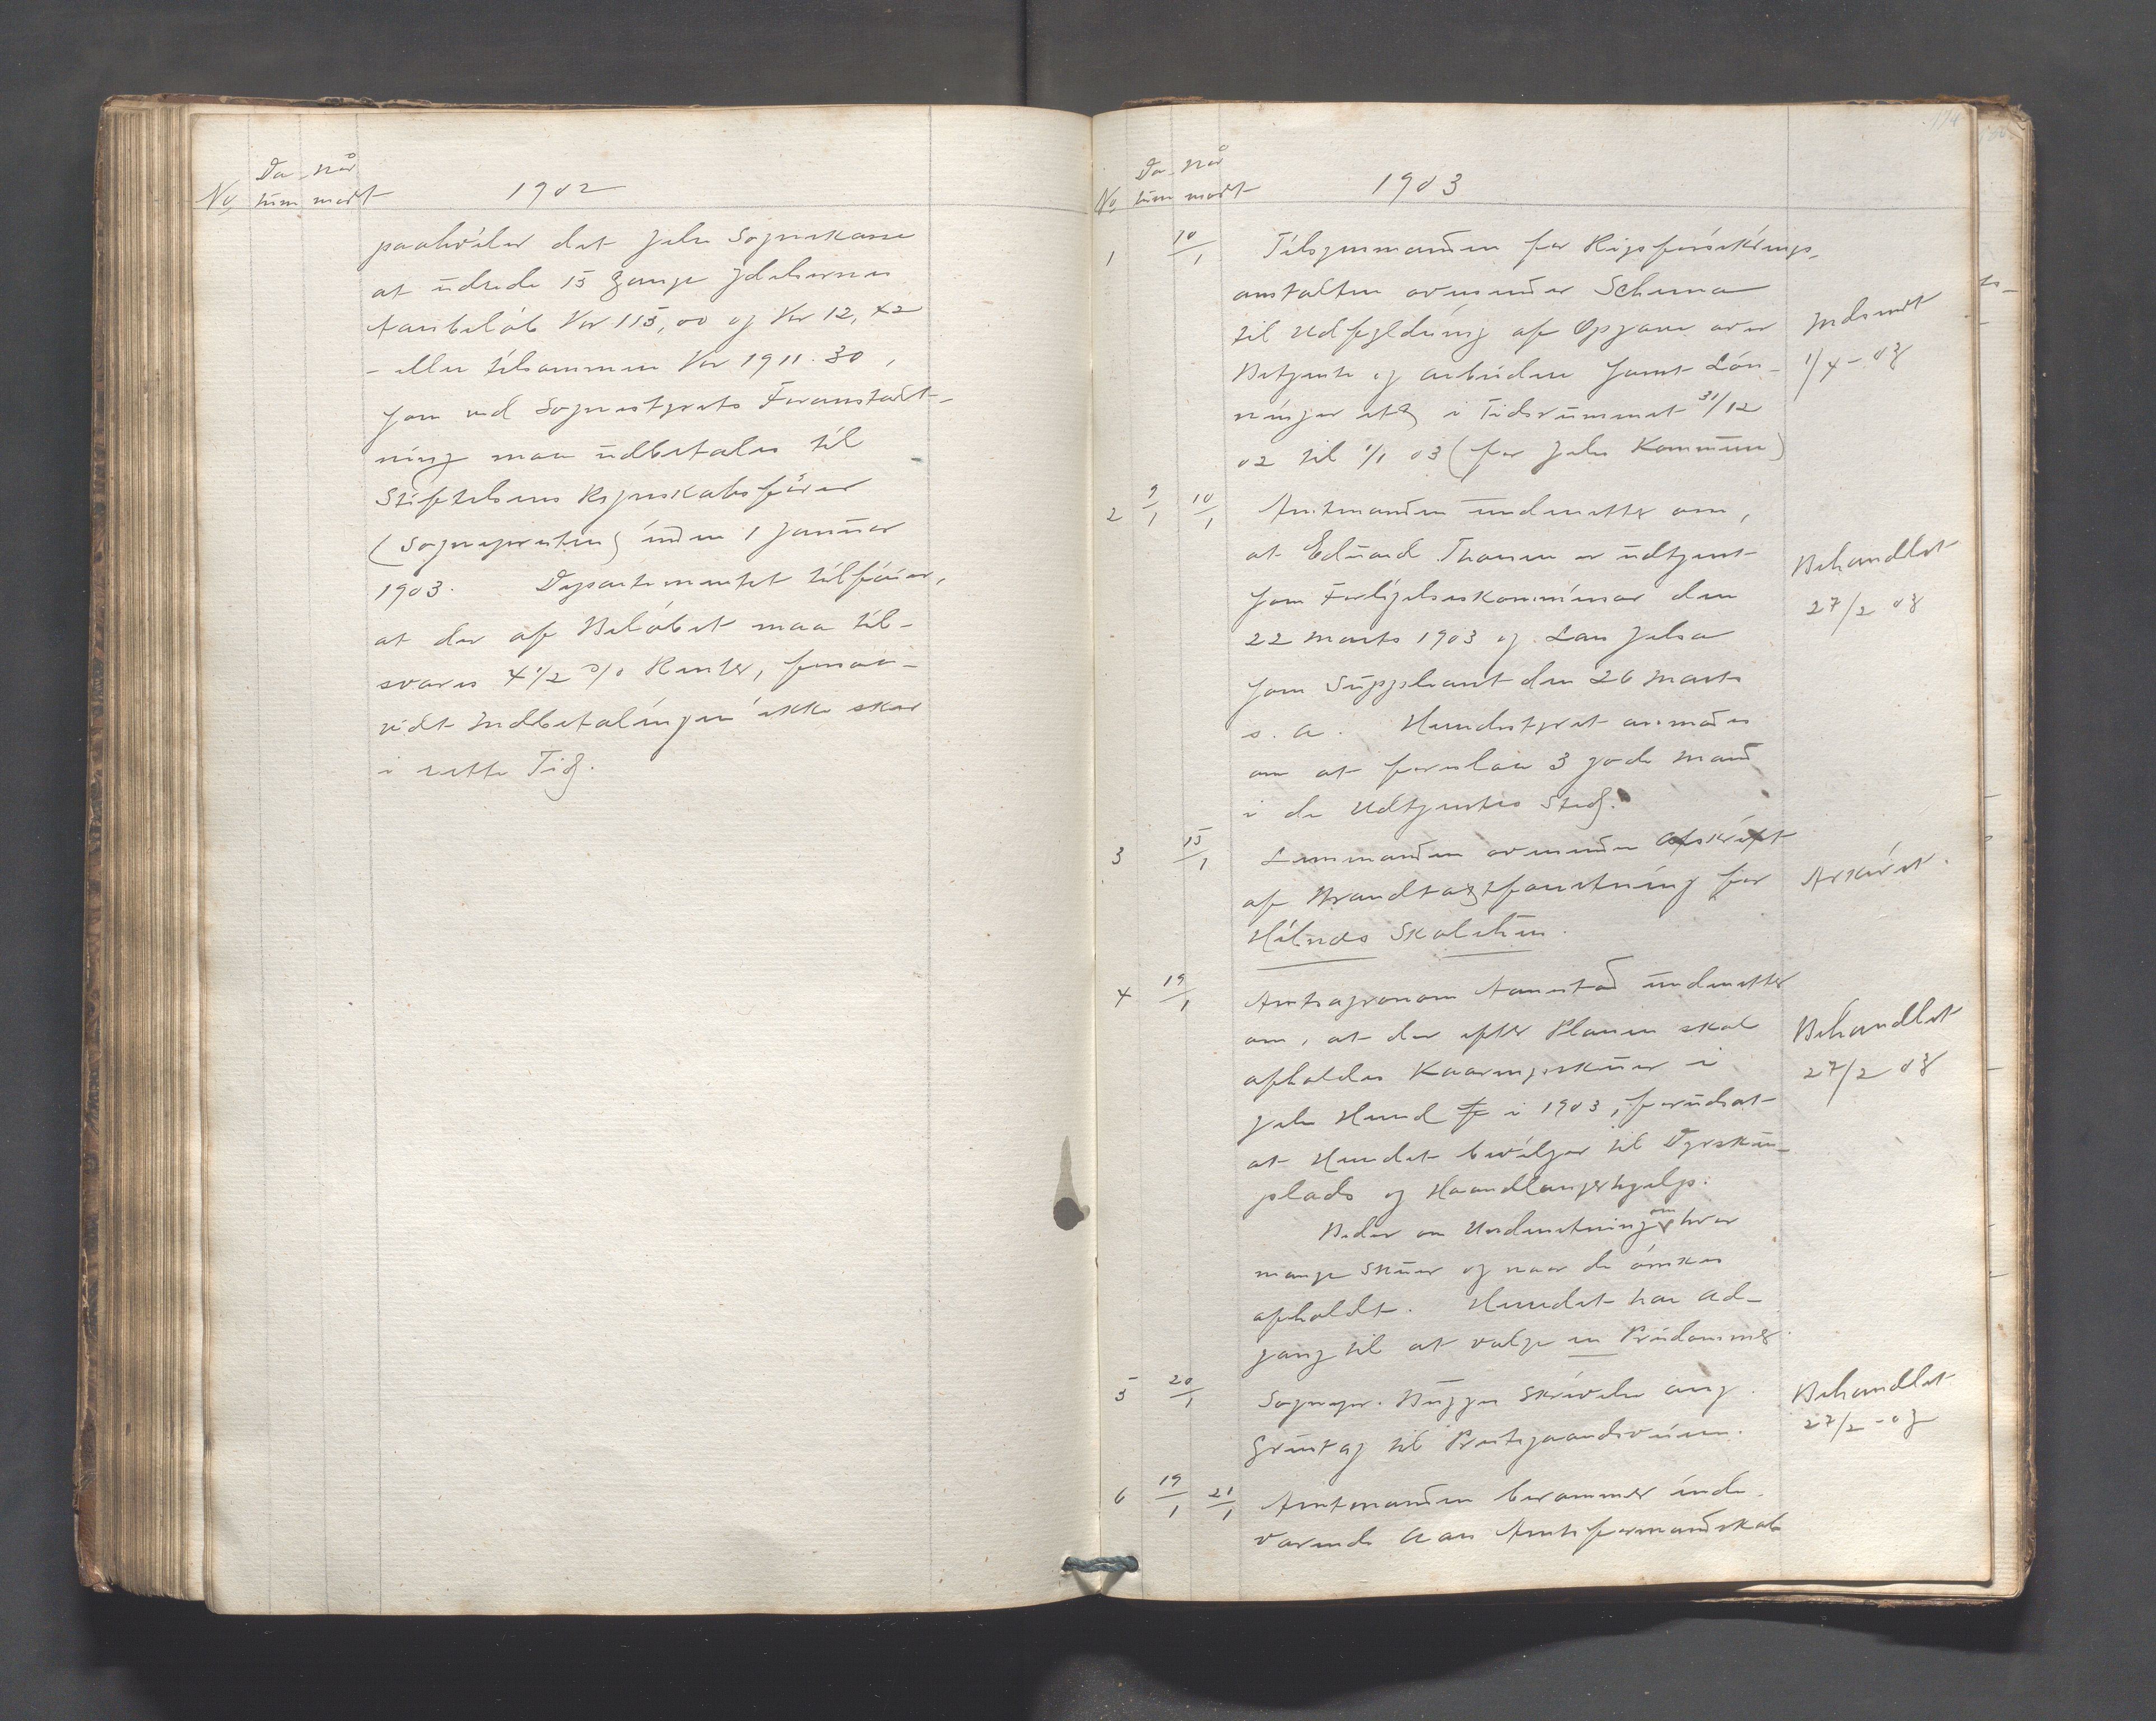 No Da- når
tum modt 1902
paahviler det Jelse Sognekasse
at udrede 15 Gange Ydelsernes
Aarsbeløb Kr 115,00 og Kr 12,42
- eller tilsammen Kr 1911.30,
som ved Sognestyrets Foranstalt-
ning maa udbetales til
Stiftelsens Regnskabsfører
(Sognepresten) inden 1 Januar
1903. Departementet tilføier,
at der af Beløbet maa til-
svares 4 1/2 % Renter, forsaa-
vidt Indbetalingen ikke sker
i rette Tid.
No Da- når
tum modt 1903
114
1 10/1 Tilsynsmanden for Rigsforsikrings-
anstalten oversender Schema
til Udfyldning af Opgave over
Betjente og arbeidere samt Løn-
ninger etc i Tidsrummet 31/12
02 til 1/1 03 (for Jelse Kommune)
Indsendt
1/4 - 03
2 9/1 10/1 Amtmanden underretter om,
at Edvard Thomsen er udtjent
som Forligelseskommissær den
22 Marts 1903 og Lars Jelsa
som Suppleant den 26 Marts
s. A. Herredsstyret anmodes
om at foreslaa 3 gode Mænd
i de Udtjentes Sted.
Behandlet
27/2 03
3 15/1 Lensmanden oversender Afskrift
af Brandtaxtforretning for
Hilnes Skolehus.
Arkivet.
4 19/1 Amtsagronom Aanestad underretter
om, at der efter Planen skal
afholdes Kaaringsskuer i
Jelse Herred i 1903, forudsat
at Herredet bevilger til Dyrsku-
plads og Haandlangerhjelp.
Beder om Underretning om hvor
mange Skuer og naar de ønskes
afholdt. Herredet har Ad-
gang til at vælge en Prisdommer.
Behandlet
27/2 03
5 20/1 Sognepr. Bugges Skrivelse ang.
Grustag til Prestegaardsveien.
Behandlet
27/2 - 03
6 19/1 21/1 Amtmanden berammer inde-
værende Aars Amtsformandskab